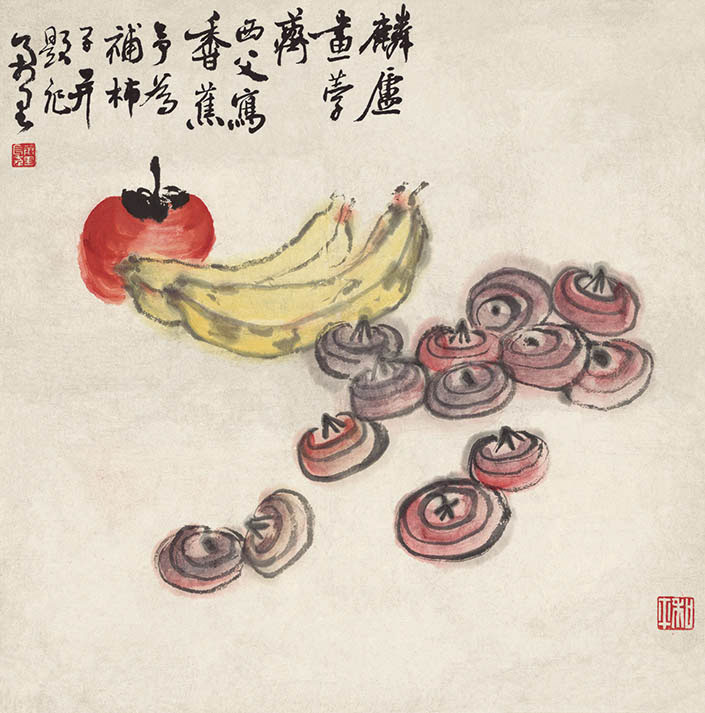 麟廬
畫荸
薺
西父寫
香蕉
予為
補柿
子并
題記
和平